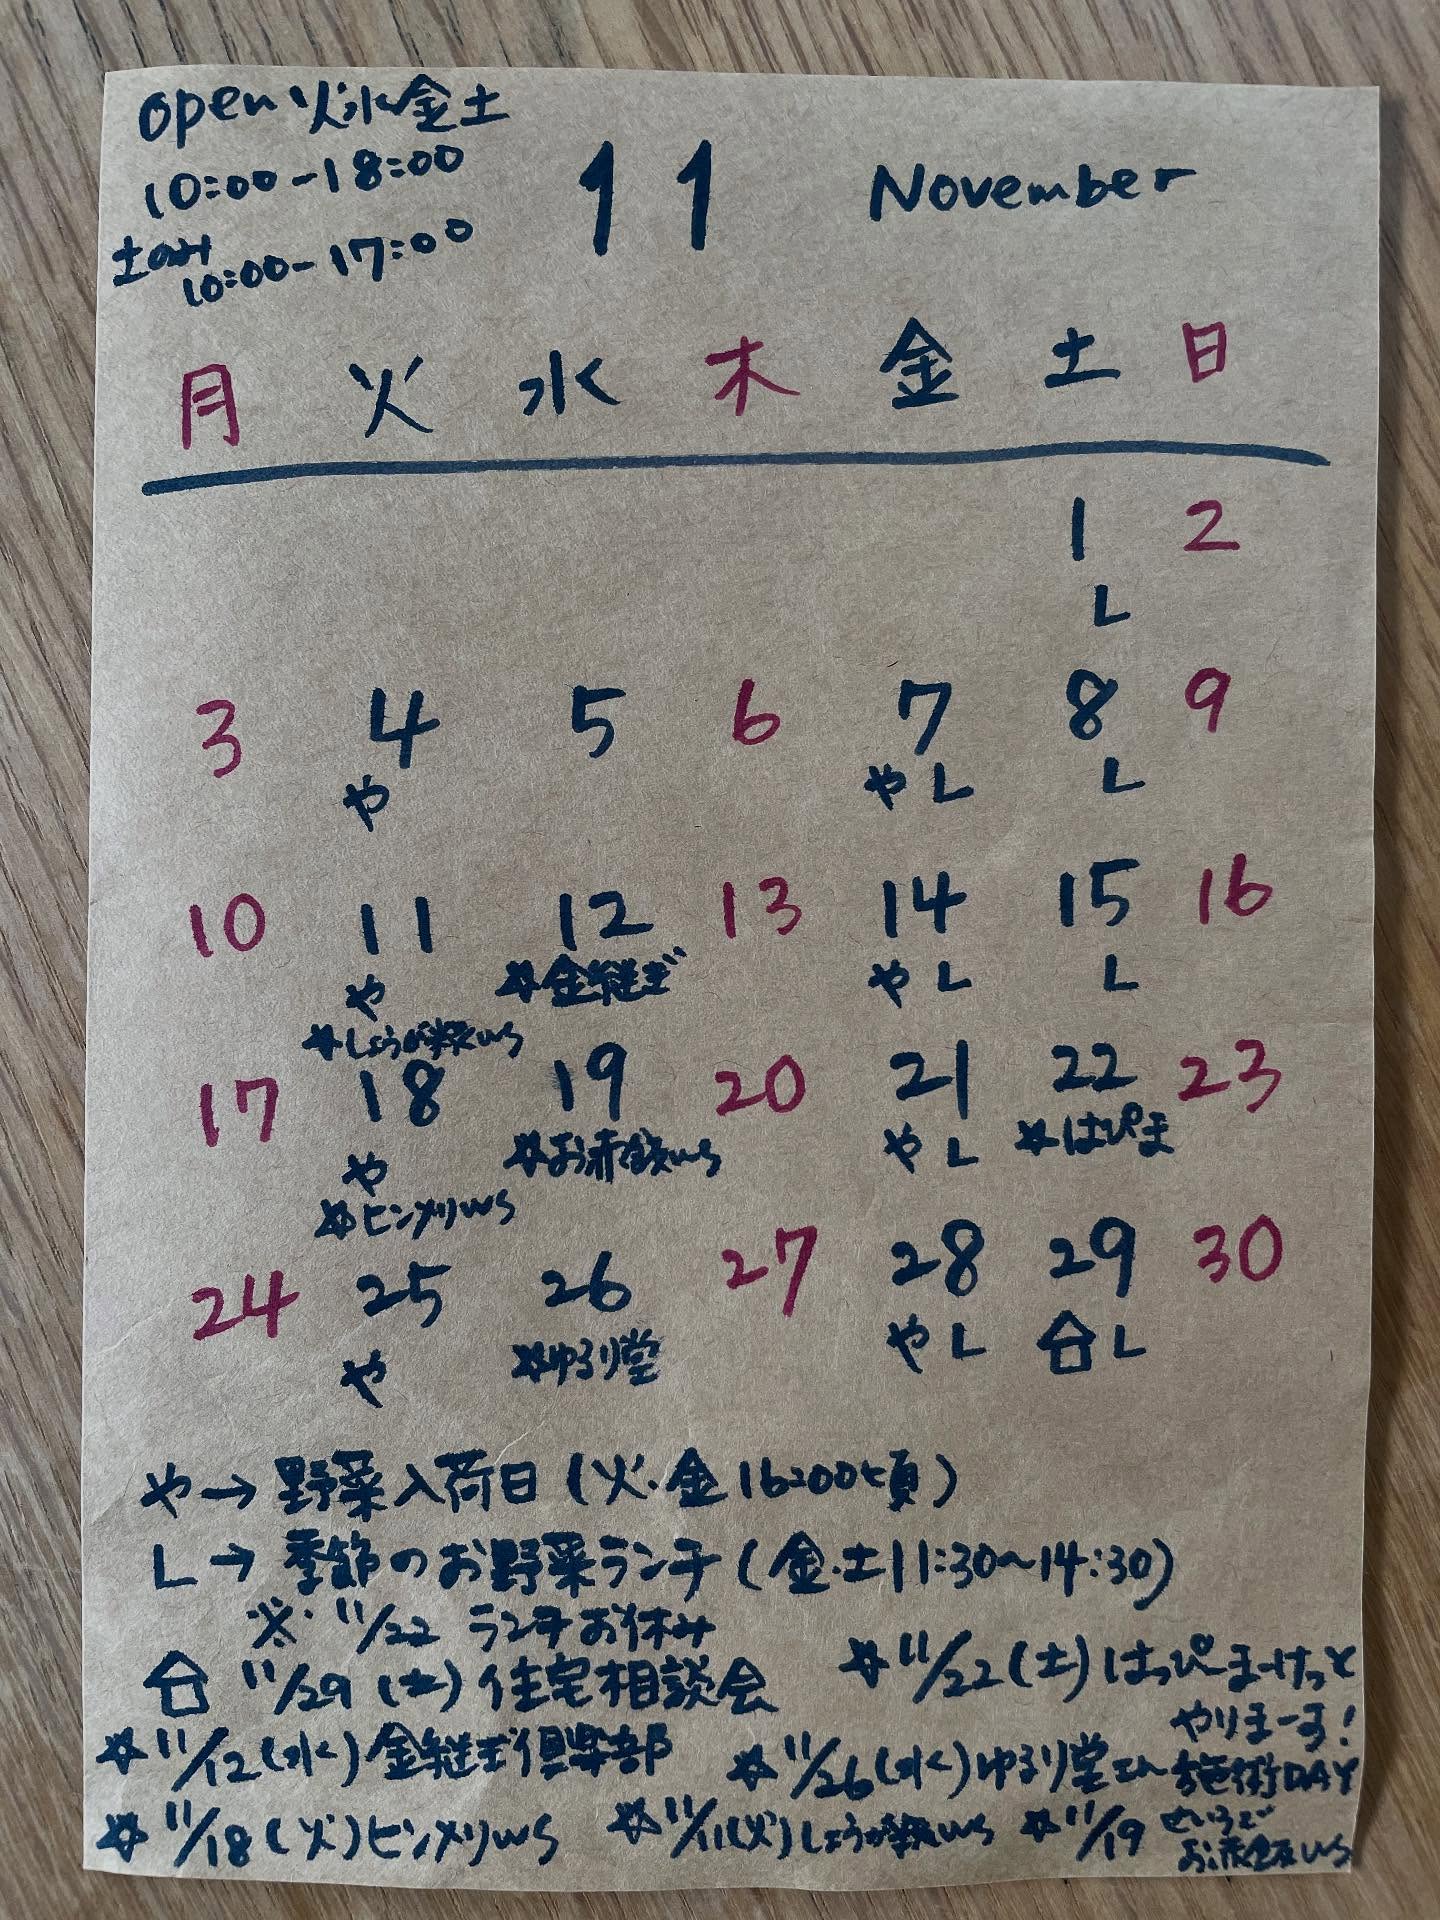 open 火水金土
10:00-18:00
土のみ
10:00-17:00
11 November
月 火 水 木 金 土 日
1 2
L
3 4 5 6 7 8 9
や や L L
10 11 12 13 14 15 16
や ☆金継ぎ や L L
☆しょうが糀WS
17 18 19 20 21 22 23
や ☆お赤飯WS や L ☆はぴま
☆ヒンメリWS
24 25 26 27 28 29 30
や ☆ゆるり堂 や L L
や→野菜入荷日(火・金16:00頃)
L→季節のお野菜ランチ(金・土11:30〜14:30)
※11/22 ランチお休み
11/29(土)住宅相談会
☆11/22(土)はっぴーまーけっと
やりまーす!
☆11/12(水)金継ぎ倶楽部
☆11/26(水)ゆるり堂さん施術DAY
☆11/18(火)ヒンメリWS
☆11/11(火)しょうが糀WS
☆11/19 せいろで
お赤飯WS